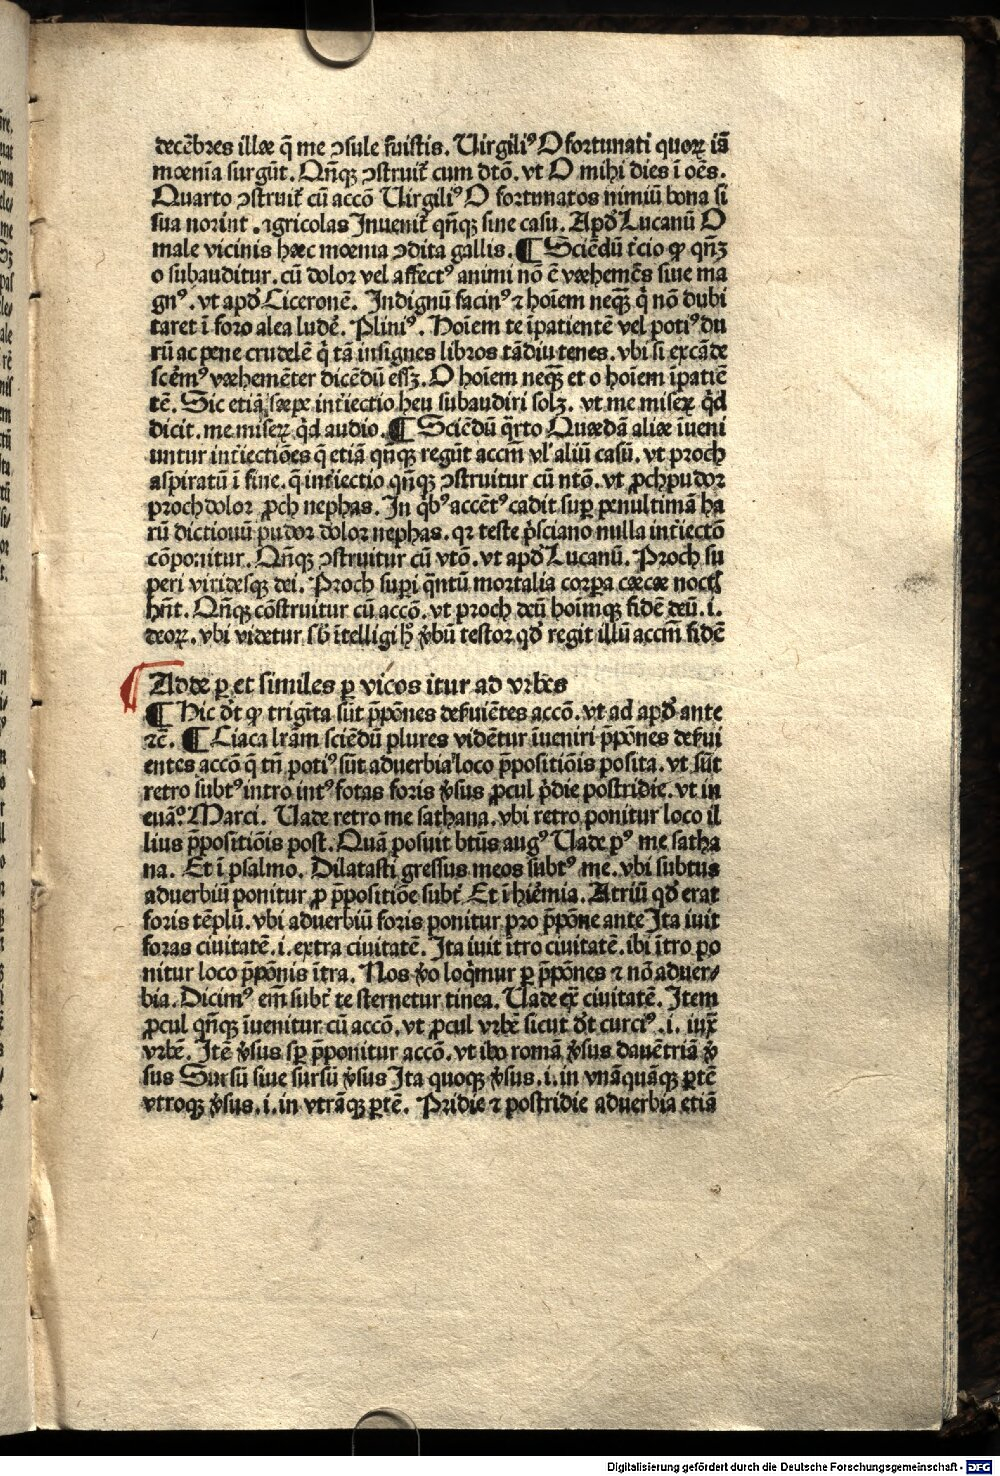 decēbres illæ q̄ me ꝯsule fuistis. Uirgiliꝰ O fortunati quoꝝ iā
mœnia surgūt. Qn̄qꝫ ꝯstruit̄ cum dtō. vt O mihi dies ī oēs.
Quarto ꝯstruit̄ cū accō Uirgiliꝰ O fortunatos nimiū bona si
sua norint. agricolas Inuenit̄ qn̄qꝫ sine casu. Apd̄ Lucanū O
male vicinis hæc mœnia ꝯdita gallis. ¶ Sciēdū t̄cio ꝙ qn̄qꝫ
o subauditur. cū dolor vel affectꝰ animi nō ē væhemēs siue ma
gnꝰ. vt apd̄ Ciceronē. Indignū facinꝰ ⁊ hoīem neqꝫ q̇ nō dubi
taret ī foro alea ludē. Pliniꝰ. Hoīem te īpatientē vel potiꝰ du
rū ac pene crudelē q̇ tā insignes libros tādiu tenes. vbi si excāde
scēmꝰ væhemēter dicēdū essꝫ. O hoīem neqꝫ et o hoīem īpatiē
tē. Sic etiā sæpe int̄iectio heu subaudiri solꝫ. vt me miseꝝ qd̄
dicit. me miseꝝ qd̄ audio. ¶ Sciēdū q̄rto Quædā aliæ īueni
untur int̄iectiōes q̄ etiā qn̄qꝫ regūt accm̄ vl' aliū casū. vt proch
aspiratū ī fine. q̄ int̄iectio qn̄qꝫ ꝯstruitur cū ntō. vt ꝓch pudor
proch dolor ꝓch nephas. In q̇bꝰ accētꝰ cadit suꝑ penultimā ha
rū dictionū pudor dolor nephas. qꝛ teste p̄sciano nulla int̄iectō
cōponitur. Qn̄qꝫ ꝯstruitur cū vtō. vt apd̄ Lucanū. Proch su
peri viridesqꝫ dei. Proch suꝑi q̄ntū mortalia corꝑa cæcæ noctꝭ
hn̄t. Qn̄qꝫ cōstruitur cū accō. vt proch deū hoimqꝫ fidē deū. i.
deoꝝ. vbi videtur sb̄ ītelligi h̄ ꝟbū testor qd̄ regit illū accm̄ fidē
Adde ꝑ et similes ꝑ vicos itur ad vrbes
¶ Hic dt̄ ꝙ trigīta sūt p̄pōnes deẜuiētes accō. vt ad apd̄ ante
⁊cē. ¶ Circa lr̄am sciēdū plures vidētur īueniri p̄pōnes deẜui
entes accō q̄ tn̄ potiꝰ sūt aduerbia loco p̄positiōis posita. vt sūt
retro subtꝰ intro intꝰ foras foris ꝟsus ꝓcul p̄die postridie. vt in
euāᵒ Marci. Uade retro me sathana. vbi retro ponitur loco il
lius p̄positiōis post. Quā posuit btūs augꝰ Uade pꝰ me satha
na. Et ī psalmo. Dilatasti gressus meos subtꝰ me. vbi subtus
aduerbiū ponitur ꝓ p̄positiōe subt̄ Et ī hiēmia. Atriū qd̄ erat
foris tēplū. vbi aduerbiū foris ponitur pro p̄pōne ante Ita iuit
foras ciuitatē. i. extra ciuitatē. Ita iuit ītro ciuitatē. ibi ītro po
nitur loco p̄pōnis ītra. Nos ꝟo loq̇mur ꝑ p̄pōnes ⁊ nō aduer⸗
bia. Dicimꝰ em̄ subt̄ te sternetur tinea. Uade ex̄ ciuitatē. Item
ꝓcul qn̄qꝫ īuenitur cū accō. vt ꝓcul vrbē sicut dt̄ curciꝰ. i. iux̄
vrbē. Itē ꝟsus sꝑ p̄ponitur accō. vt ibo romā ꝟsus dauētriā ꝟ
sus Sursū siue sursū ꝟsus Ita quoqꝫ ꝟsus. i. in vnāquāqꝫ ꝑtē
vtroqꝫ ꝟsus. i. in vtrāqꝫ ꝑtē. Pridie ⁊ postridie aduerbia etiā
Digitalisierung gefördert durch die Deutsche Forschungsgemeinschaft - DFG